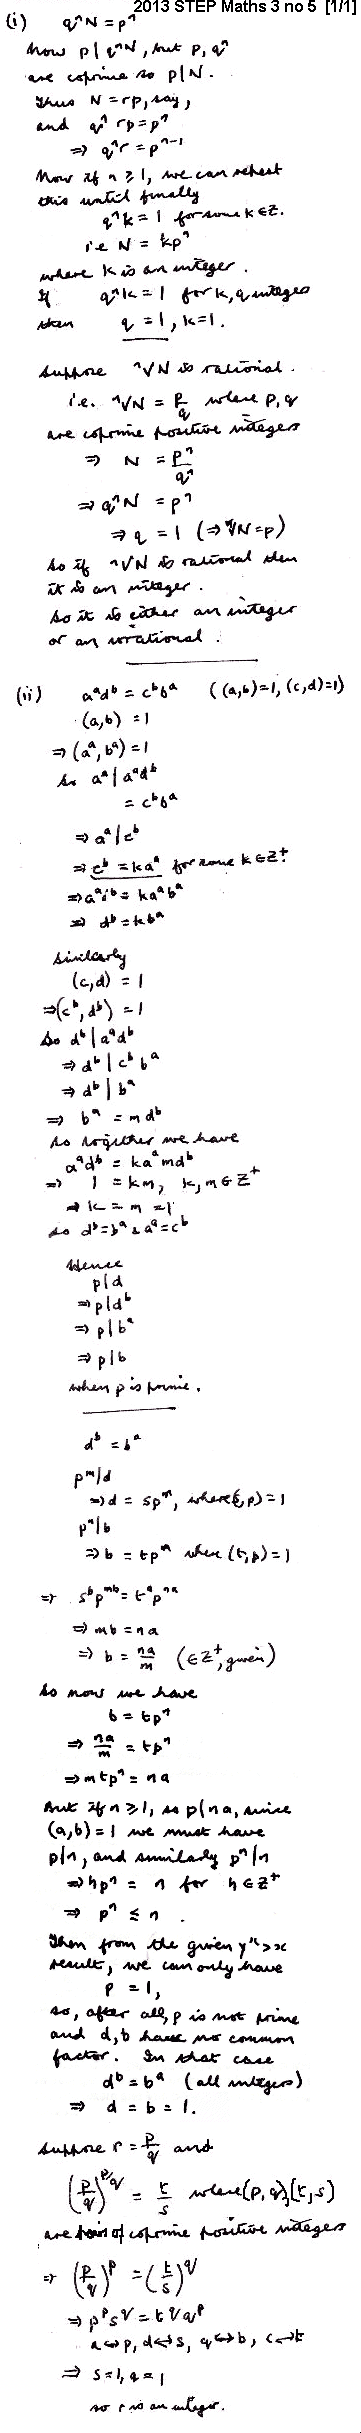 2013 STEP Maths 3 no 5 [1/1]
(i) qⁿN = pⁿ
Now p | qⁿN, but p, qⁿ
are coprime so p | N.
Thus N = rp, say,
and qⁿ rp = pⁿ
⇒ qⁿr = pⁿ⁻¹
Now if n ≥ 1, we can repeat
this until finally
qⁿk = 1 for some k ∈ Z.
i.e. N = kpⁿ
where k is an integer.
If qⁿk = 1 for k, q integers
then q = 1, k = 1.
Suppose ⁿ√N is rational.
i.e. ⁿ√N = p/q where p, q
are coprime positive integers
⇒ N = pⁿ/qⁿ
⇒ qⁿN = pⁿ
⇒ q = 1 (⇒ ⁿ√N = p)
So if ⁿ√N is rational then
it is an integer.
So it is either an integer
or an irrational.
(ii) aᵃdᵇ = cᵇbᵃ ((a,b)=1, (c,d)=1)
(a,b) = 1
⇒ (aᵃ, bᵃ) = 1
So aᵃ | aᵃdᵇ
= cᵇbᵃ
⇒ aᵃ | cᵇ
⇒ cᵇ = kaᵃ for some k ∈ Z⁺.
⇒ aᵃdᵇ = kaᵃbᵃ
⇒ dᵇ = kbᵃ
Similarly
(c,d) = 1
⇒ (cᵇ, dᵇ) = 1
So dᵇ | aᵃdᵇ
⇒ dᵇ | cᵇ bᵃ
⇒ dᵇ | bᵃ
⇒ bᵃ = m dᵇ
So together we have
aᵃdᵇ = kaᵃmdᵇ
⇒ 1 = km, k, m ∈ Z⁺
⇒ k = m = 1
So dᵇ = bᵃ & aᵃ = cᵇ
Hence
p | d
⇒ p | dᵇ
⇒ p | bᵃ
⇒ p | b
when p is prime.
dᵇ = bᵃ
pᵐ | d
⇒ d = spᵐ, where (s, p) = 1
pⁿ | b
⇒ b = tpⁿ where (t, p) = 1
⇒ sᵇpᵐᵇ = tᵃpⁿᵃ
⇒ mb = na
⇒ b = na/m (∈ Z⁺, given)
So now we have
b = tpⁿ
⇒ na/m = tpⁿ
⇒ mtpⁿ = na
But if n ≥ 1, so p | na, since
(a,b) = 1 we must have
p | n, and similarly pⁿ | n
⇒ hpⁿ = n for h ∈ Z⁺
⇒ pⁿ ≤ n.
Then from the given yˣ > x
result, we can only have
p = 1,
so, after all, p is not prime
and d, b have no common
factor. In that case
dᵇ = bᵃ (all integers)
⇒ d = b = 1.
Suppose r = p/q and
(p/q)^(p/q) = t/s where (p, q), (t, s)
are pairs of coprime positive integers
⇒ (p/q)ᵖ = (t/s)^q
⇒ pᵖ s^q = t^q qᵖ
a ↔ p, d ↔ s, q ↔ b, c ↔ t
⇒ s = 1, q = 1
so r is an integer.